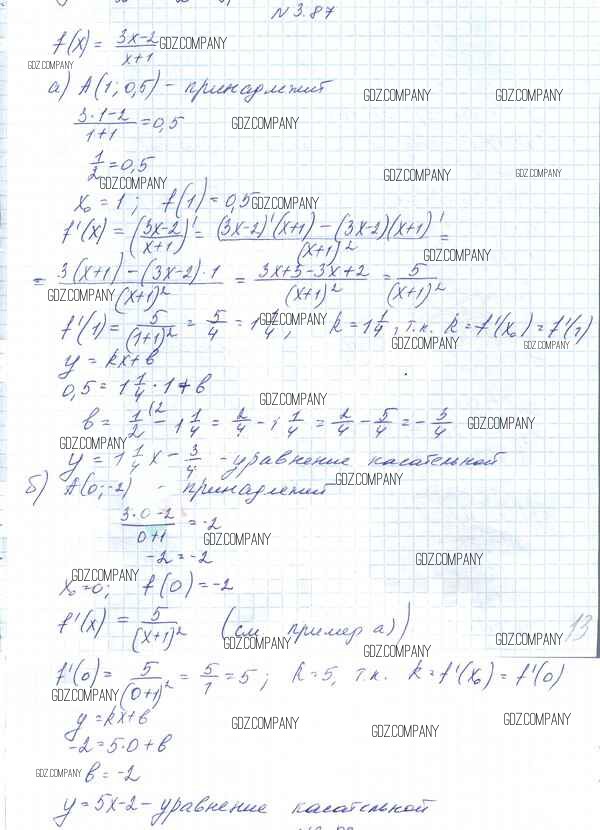 N 3.87
f(x) = (3x-2)/(x+1) GDZ.COMPANY
GDZ.COMPANY
а) A(1; 0,5) - принадлежит GDZ.COMPANY GDZ.COMPANY
(3·1-2)/(1+1) = 0,5 GDZ.COMPANY
1/2 = 0,5 GDZ.COMPANY GDZ.COMPANY
GDZ.COMPANY
x₀ = 1; f(1) = 0,5 GDZ.COMPANY
f'(x) = ((3x-2)/(x+1))' = ((3x-2)'(x+1) - (3x-2)(x+1)')/(x+1)² =
GDZ.COMPANY
= (3(x+1) - (3x-2)·1)/(x+1)² = (3x+3-3x+2)/(x+1)² = 5/(x+1)²
GDZ.COMPANY
f'(1) = 5/(1+1)² = 5/4 = 1 1/4; k = 1 1/4, т.к. k = f'(x₀) = f'(1)
GDZ.COMPANY GDZ.COMPANY GDZ.COMPANY
y = kx+b
0,5 = 1 1/4 · 1 + b
GDZ.COMPANY
b = 1/2 - 1 1/4 = 2/4 - 1 1/4 = 2/4 - 5/4 = - 3/4 GDZ.COMPANY
GDZ.COMPANY
y = 1 1/4 x - 3/4 - уравнение касательной
б) A(0; -2) - принадлежит GDZ.COMPANY
(3·0-2)/(0+1) = -2 GDZ.COMPANY
-2 = -2 GDZ.COMPANY
GDZ.COMPANY
x₀ = 0; f(0) = -2
f'(x) = 5/(x+1)² (см пример а)) 13
GDZ.COMPANY GDZ.COMPANY GDZ.COMPANY
f'(0) = 5/(0+1)² = 5/1 = 5; k = 5, т.к. k = f'(x₀) = f'(0)
GDZ.COMPANY
y = kx+b GDZ.COMPANY GDZ.COMPANY GDZ.COMPANY
-2 = 5·0+b
GDZ.COMPANY b = -2
y = 5x-2 - уравнение касательной